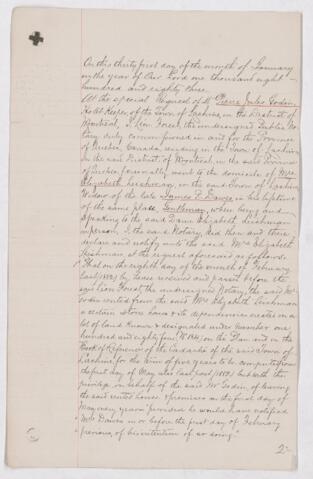 On this thirty first day of the month of January
in the year of Our Lord one thousand eight
hundred and eighty three.
At the special Request of Mr Pierre Jules Godin,
Hotel Keeper, of the Town of Lachine, in the District of
Montreal, I Léon Forest, the undersigned Public No-
tary duly commissioned in and for the Province
of Quebec, Canada, residing in the Town of Lachine
in the said District of Montreal, in the said Province
of Quebec, personally went to the domicile of Mrs
Elizabeth Leishman, in the said Town of Lachine
Widow of the late James P. Dawes in his lifetime
of the same place, Gentleman, where being and
speaking to the said Dame Elizabeth Leishman
in person, I, the said Notary, did then and there
declare and notify unto the said Mrs Elizabeth
Leishman, at the request aforesaid as follows.
That on the eighth day of the month of February
last (1882) by lease received and passed before the
said Léon Forest the undersigned Notary, the said Mr
Godin rented from the said Mrs Elizabeth Leishman
a certain stone house & its dependencies erected on a
lot of land known & designated under number one
hundred and eighty four (No 184) on the Plan and in the
Book of Reference of the cadastre of the said Town of
Lachine, for the term of five years to be computed from
the first day of May now last past (1882) but with the
privilege on behalf of the said Mr Godin, of leaving
the said rented house & premises on the first day of
May every year "provided he would have notified
"Mrs Dawes in or before the first day of February
"previous, of his intention of so doing."
2